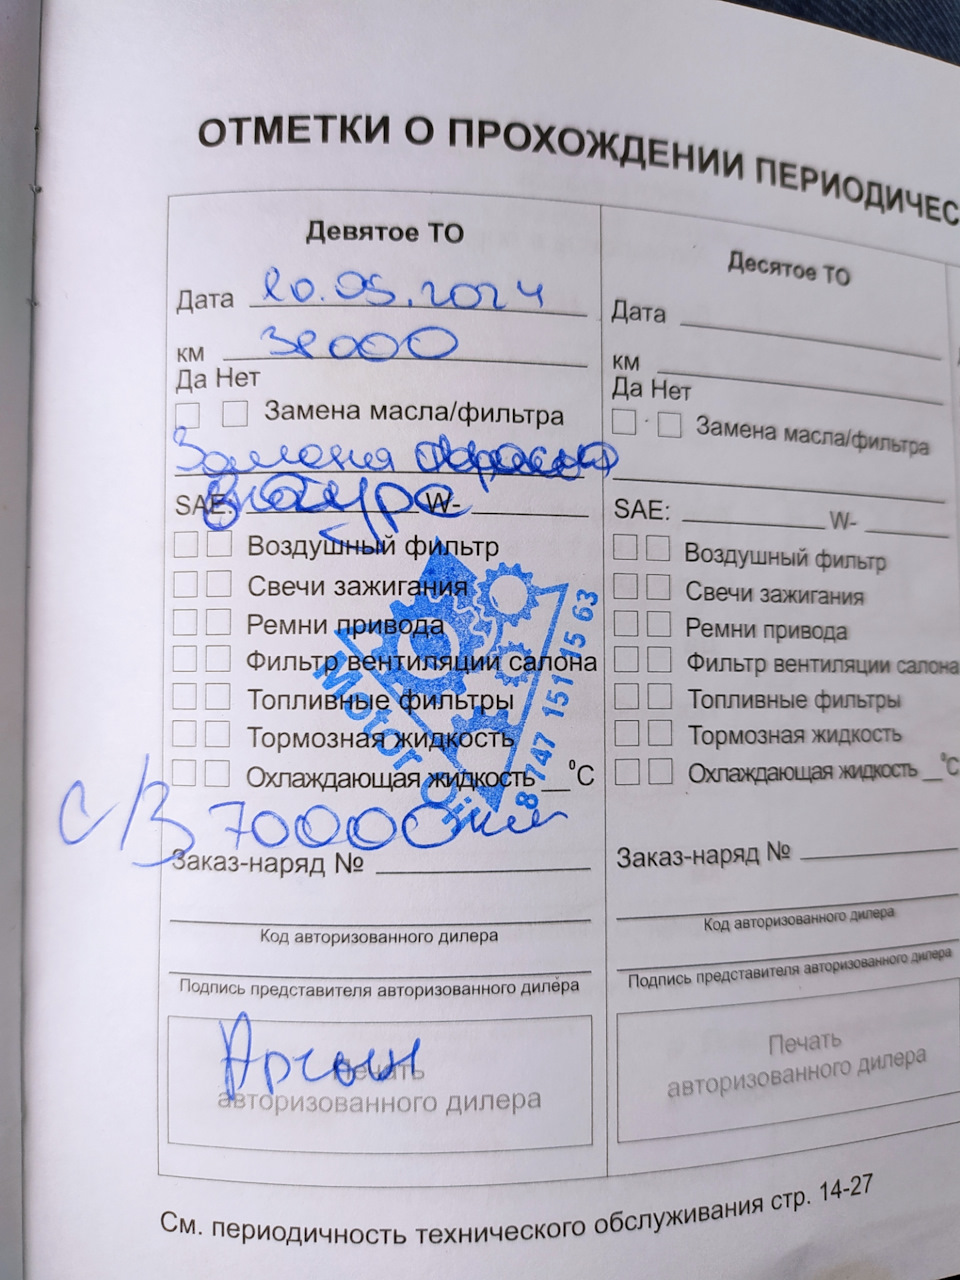 ОТМЕТКИ О ПРОХОЖДЕНИИ ПЕРИОДИЧЕС
Девятое ТО
Дата 20.05.2024
км 38000
Да Нет
Замена масла/фильтра
Замена
SAE: W-
Воздушный фильтр
Свечи зажигания
Ремни привода
Фильтр вентиляции салона
Топливные фильтры
Тормозная жидкость
Охлаждающая жидкость __°C
Motor Oil
8 747 151 15 63
С/З 70000км
Заказ-наряд №
Код авторизованного дилера
Подпись представителя авторизованного дилера
Аргын
Печать
авторизованного дилера
Десятое ТО
Дата
км
Да Нет
Замена масла/фильтра
SAE: W-
Воздушный фильтр
Свечи зажигания
Ремни привода
Фильтр вентиляции салона
Топливные фильтры
Тормозная жидкость
Охлаждающая жидкость __°C
Заказ-наряд №
Код авторизованного дилера
Подпись представителя авторизованного дилера
Печать
авторизованного дилера
См. периодичность технического обслуживания стр. 14-27